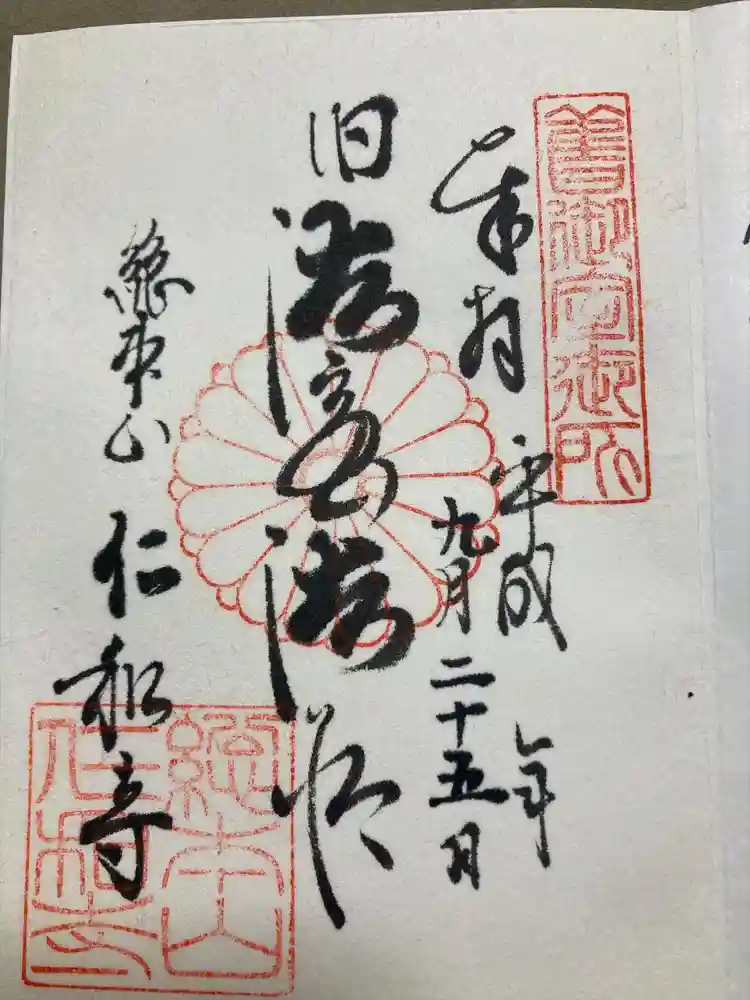 舊御室御所
奉拝
平成 年
九月二十五日
旧御室御所
総本山 仁和寺
總本山
仁和寺